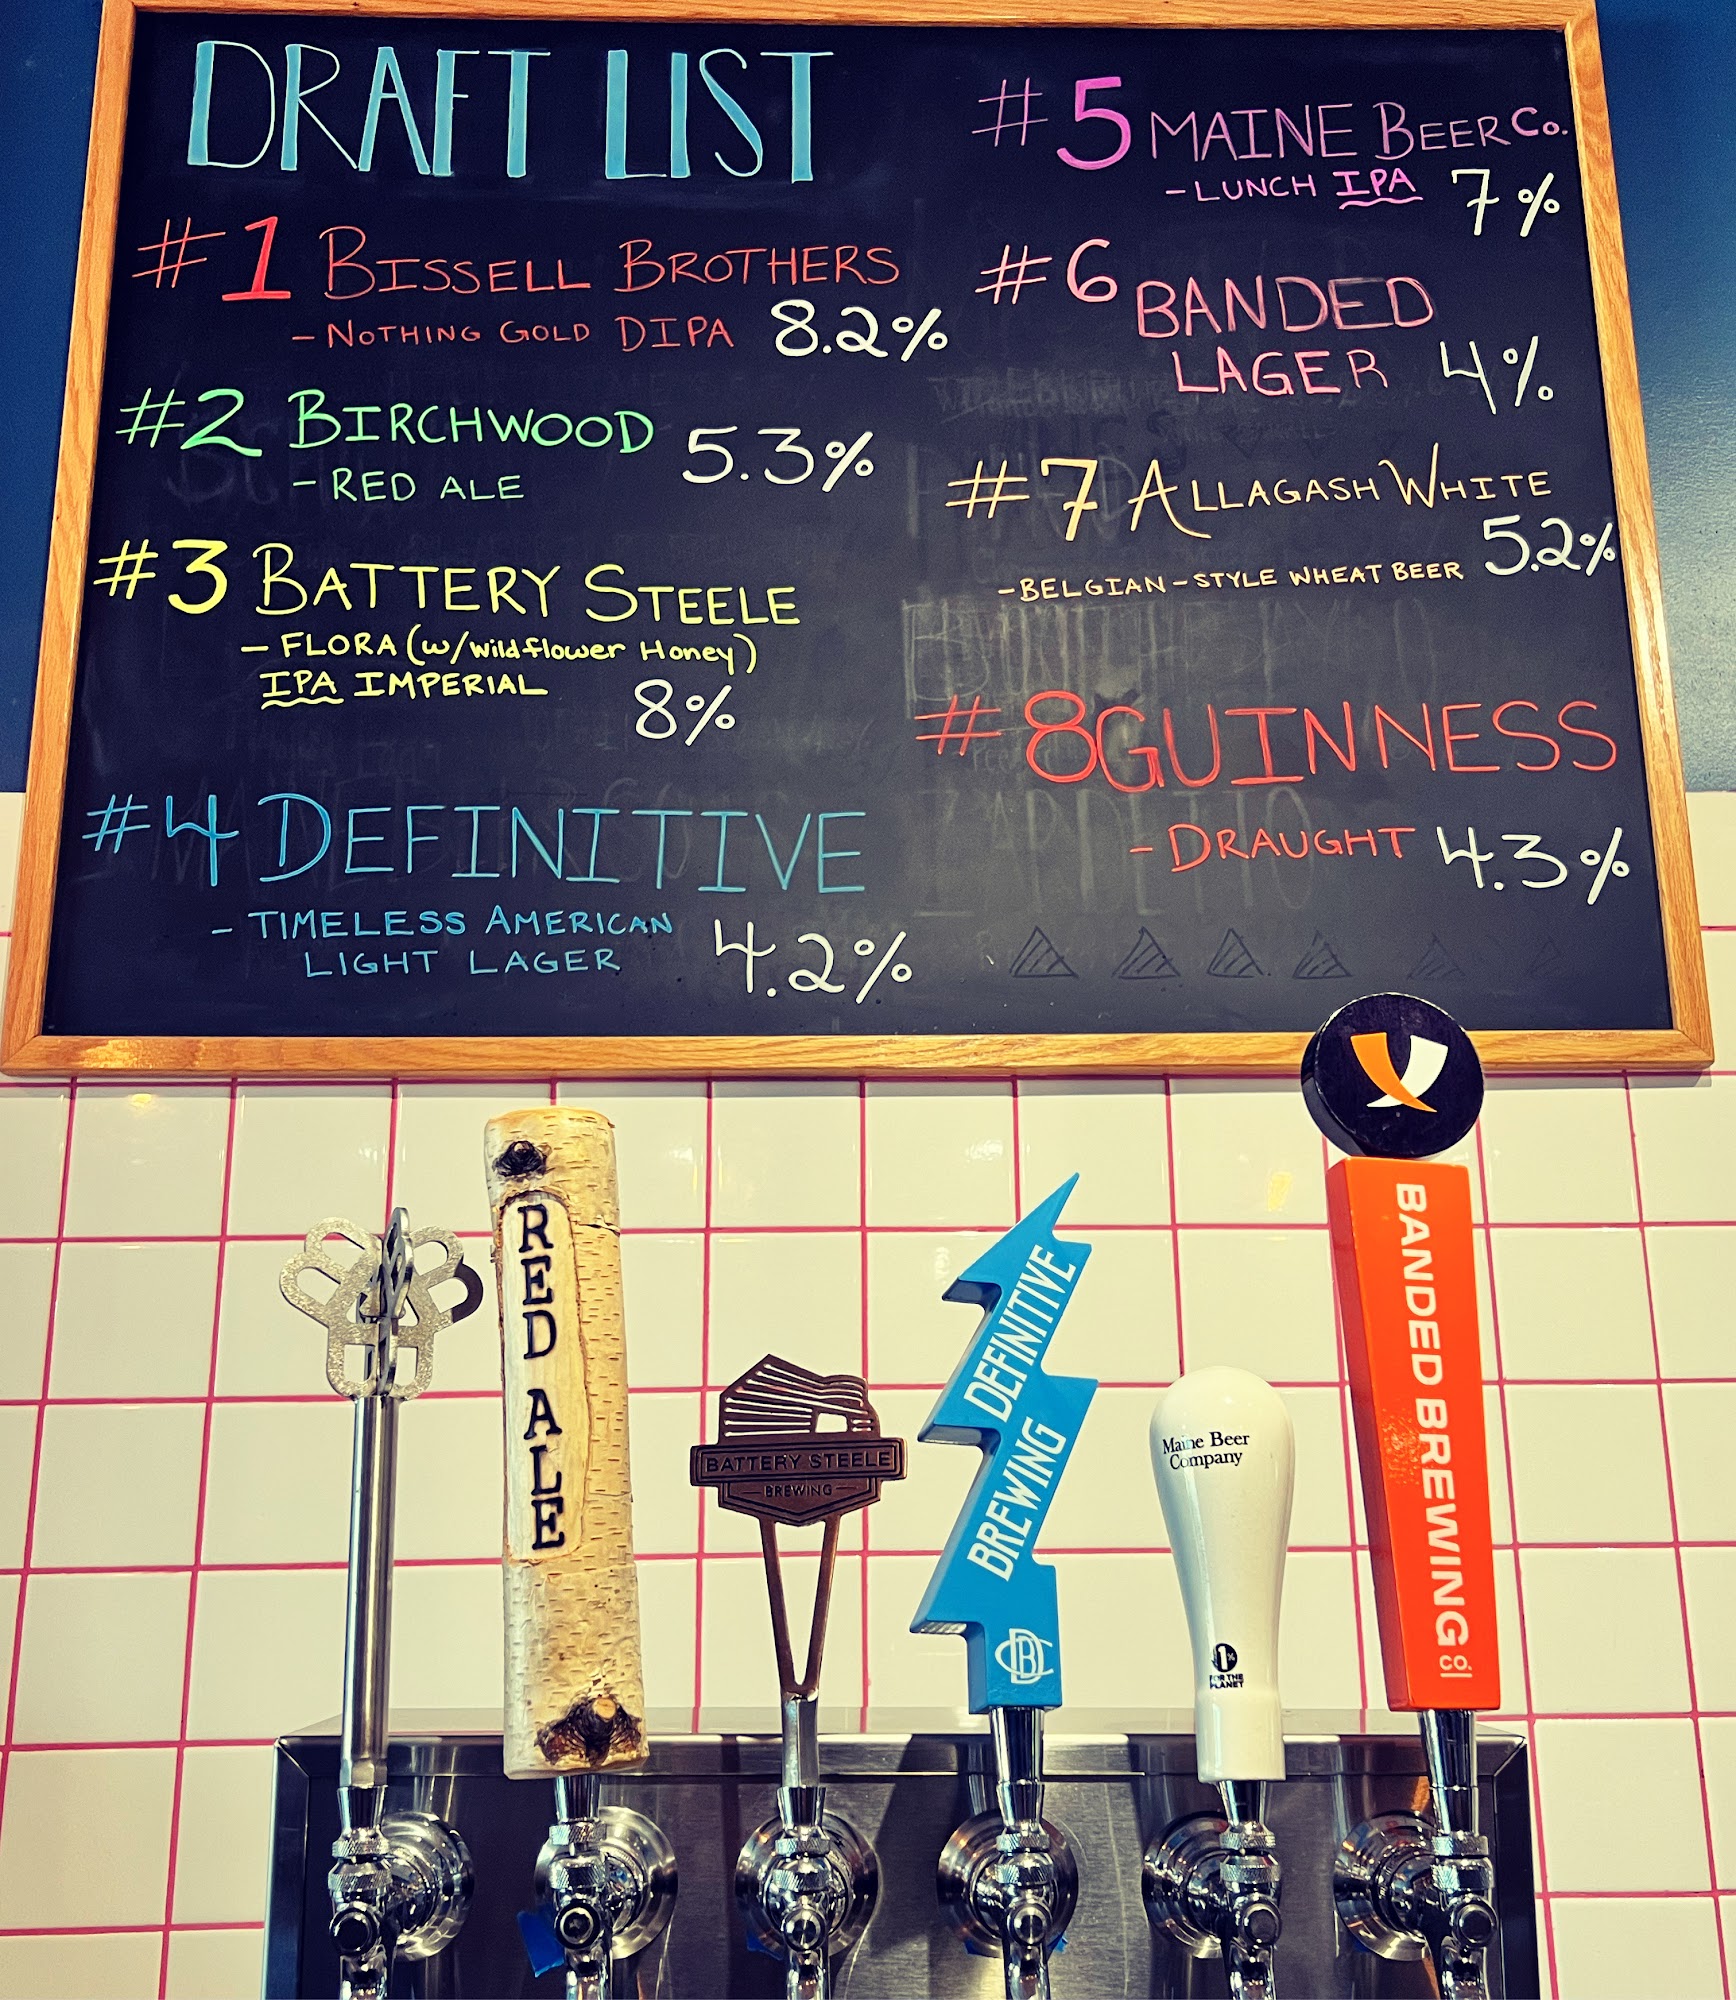 DRAFT LIST
#1 BISSELL BROTHERS
- NOTHING GOLD DIPA 8.2%
#2 BIRCHWOOD
- RED ALE 5.3%
#3 BATTERY STEELE
- FLORA (w/wildflower Honey)
IPA IMPERIAL 8%
#4 DEFINITIVE
- TIMELESS AMERICAN
LIGHT LAGER 4.2%
#5 MAINE BEER Co.
- LUNCH IPA 7%
#6 BANDED
LAGER 4%
#7 ALLAGASH WHITE
- BELGIAN-STYLE WHEAT BEER 5.2%
#8 GUINNESS
- DRAUGHT 4.3%
RED ALE
BATTERY STEELE
BREWING
DEFINITIVE
BREWING
DBC
Maine Beer
Company
1%
FOR THE
PLANET
BANDED BREWING CO.